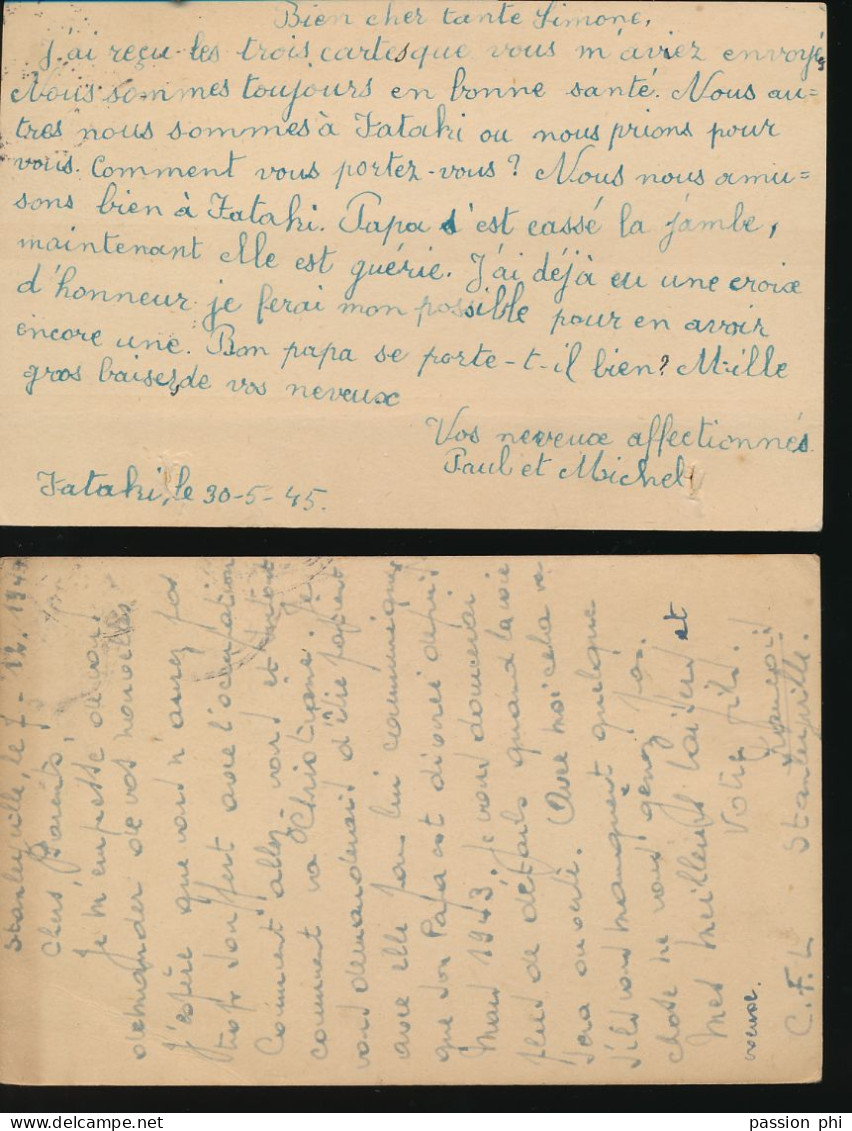 Bien cher tante Simone,
J'ai reçu les trois cartesque vous m'aviez envoyés
Nous sommes toujours en bonne santé. Nous au=
tres nous sommes à Fataki ou nous prions pour
vous. Comment vous portez-vous? Nous nous amu=
sons bien à Fataki. Papa s'est cassé la jambe,
maintenant elle est guérie. J'ai déjà eu une croix
d'honneur je ferai mon possible pour en avoir
encore une. Bon papa se porte-t-il bien? Mille
gros baisers de vos neveux
Vos neveux affectionnés
Paul et Michel
Fataki, le 30-5-45.
Stanleyville, le 7-12.194
Chers Parents,
Je m'empresse de vous
demander de vos nouvelles
j'espère que vous n'aurez pas
trop souffert avec l'occupation
Comment allez-vous et surtout
comment va Christiane. Je
vous demanderais d'être patient
avec elle sans lui communiquer
que son Papa est divorcé depuis
Mars 1943. Je vous donnerai
plus de détails quand la voie
sera ouverte. Avec moi cela va
s'il vous manquait quelque
chose ne vous genez pas.
Mes meilleurs baisers et
Votre fils!
François
voeux.
C.F.L Stanleyville.
passion phi